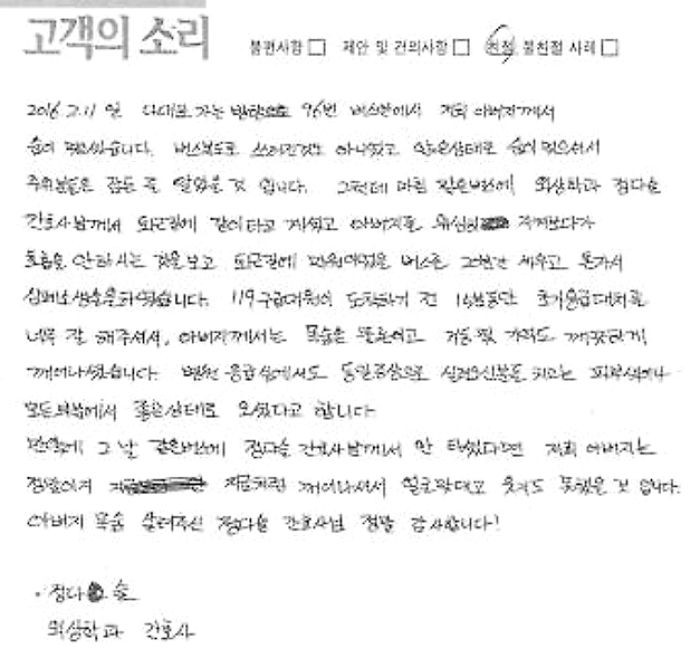 고객의 소리 불편사항 □ 제안 및 건의사항 □ 친절 불친절 사례 □
2016. 2. 11 일 다대포 가는 방향으로 96번 버스안에서 저희 아버지께서
숨이 멎으셨습니다. 버스복도로 쓰러진것도 아니었고 앉은상태로 숨이 멎으셔서
주위분들은 잠든 줄 알았을 것 입니다. 그런데 마침 같은버스에 외상학과 정다솔
간호사님께서 퇴근길에 같이타고 계셨고 아버지를 유심히 지켜보다가
호흡을 안하시는 것을 보고 퇴근길에 만원이었던 버스를 세우고 혼자서
심폐소생술을하셨습니다. 119구급대원이 도착하기 전 동안 초기응급대처를
너무 잘 해주셔서, 아버지께서는 목숨은 물론이고 거동 및 기억도 깨끗하게
깨어나셨습니다. 병원 응급실에서도 동일증상으로 실려오신분들 치고는 피부색이나
모든부분에서 좋은상태로 오셨다고 합니다
만약에 그 날 같은버스에 정다솔 간호사님께서 안 타셨다면 저희 아버지는
지금처럼 깨어나셔서 웃지도 못했을 것 입니다.
아버지 목숨 살려주신 정다솔 간호사님 정말 감사합니다!
· 정다솔
외상학과 간호사